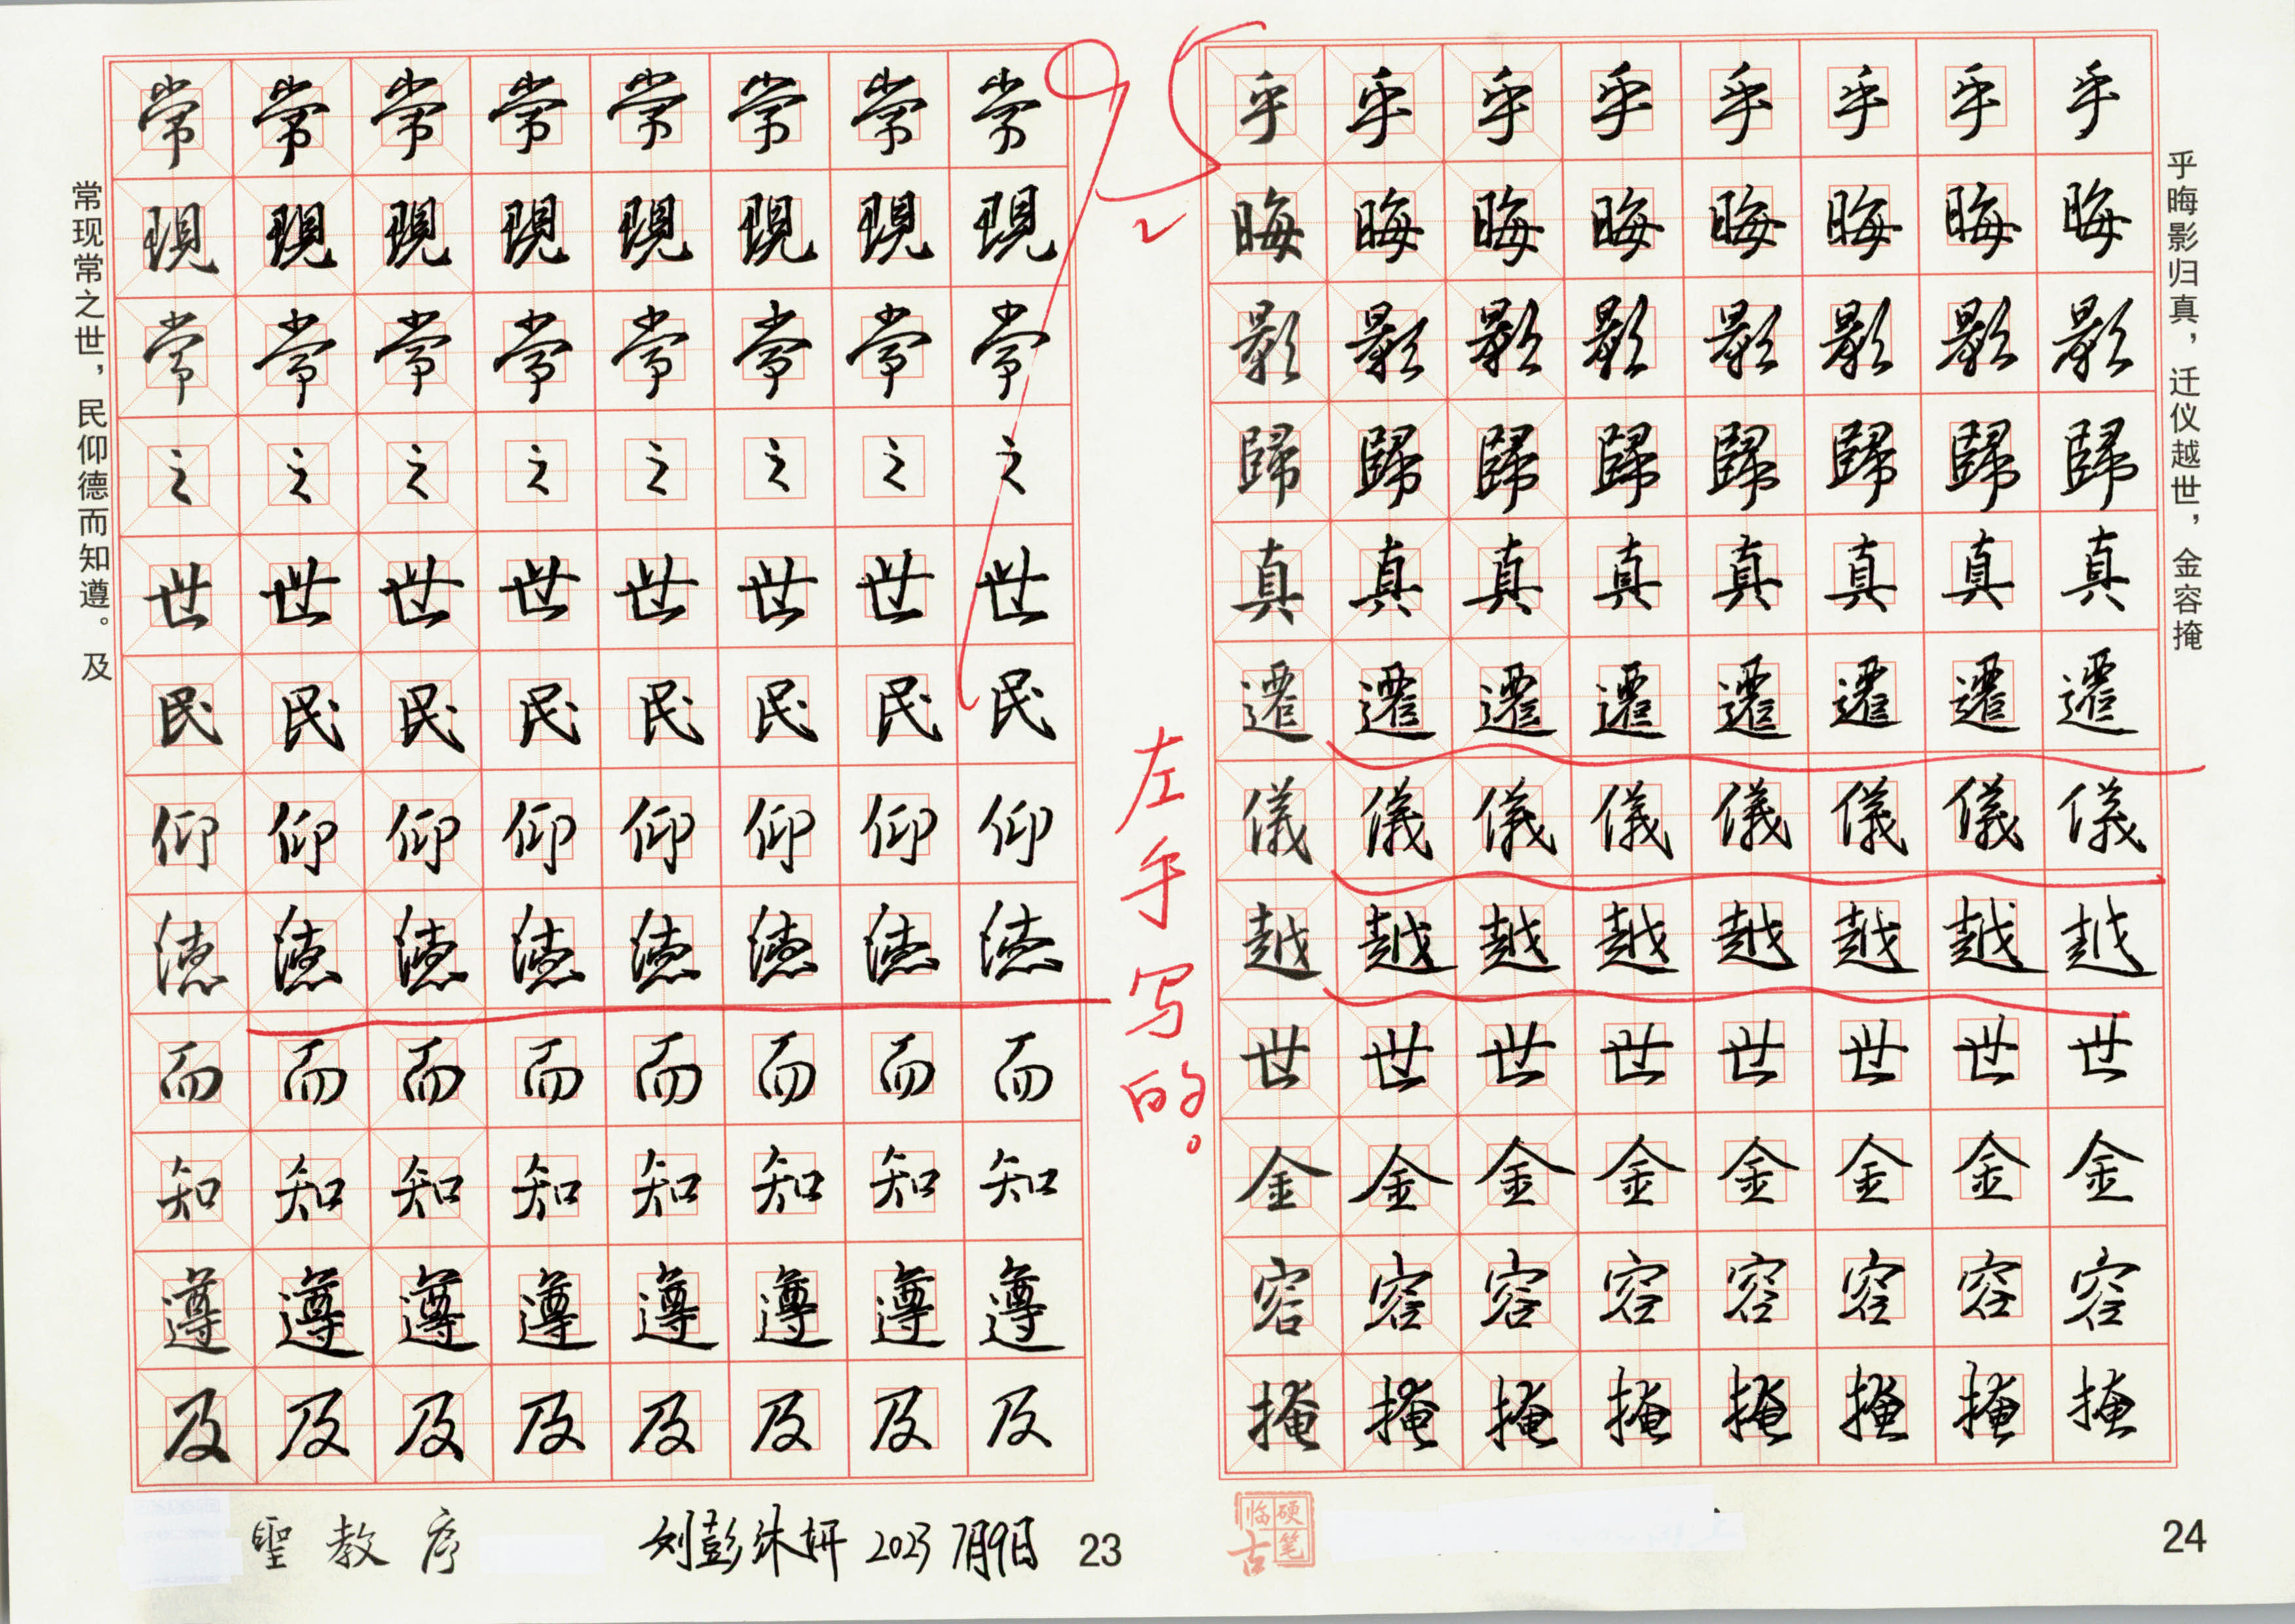 常现常之世，民仰德而知遵。及
常常常常常常常常
現現現現現現現現
常常常常常常常常
之之之之之之之之
世世世世世世世世
民民民民民民民民
仰仰仰仰仰仰仰仰
德德德德德德德德
而而而而而而而而
知知知知知知知知
遵遵遵遵遵遵遵遵
及及及及及及及及
聖教序
刘彭沐妍 2023 7月9日
23
95
左手写的。
乎乎乎乎乎乎乎乎
晦晦晦晦晦晦晦晦
影影影影影影影影
歸歸歸歸歸歸歸歸
真真真真真真真真
遷遷遷遷遷遷遷遷
儀儀儀儀儀儀儀儀
越越越越越越越越
世世世世世世世世
金金金金金金金金
容容容容容容容容
掩掩掩掩掩掩掩掩
乎晦影归真，迁仪越世，金容掩
硬笔临古
24